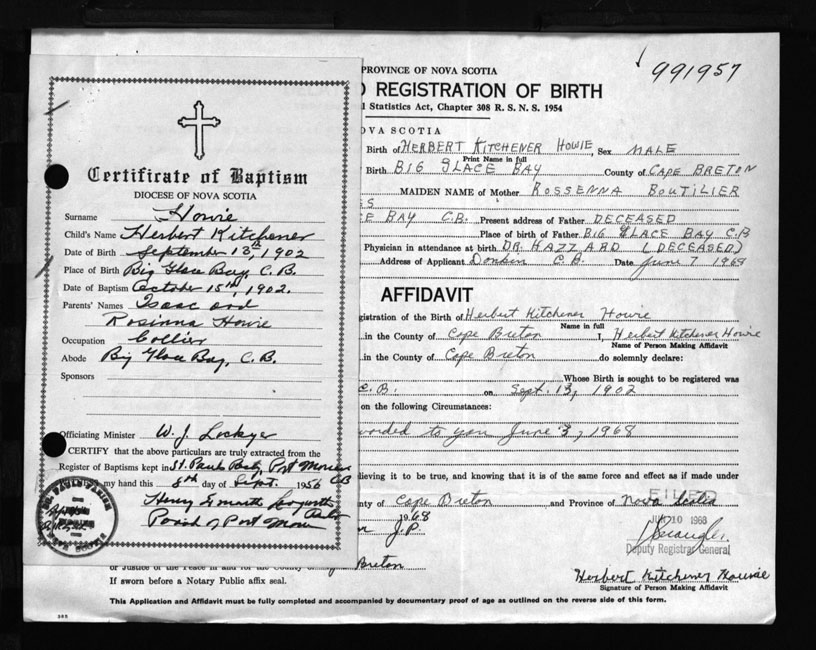 991957
PROVINCE OF NOVA SCOTIA
REGISTRATION OF BIRTH
Statistics Act, Chapter 308 R. S. N. S. 1954
OVA SCOTIA
Birth of HERBERT KITCHENER HOWIE Sex MALE
Print Name in full
Birth BIG GLACE BAY County of CAPE BRETON
MAIDEN NAME of Mother ROSSENNA BOUTILIER
CE BAY C.B. Present address of Father DECEASED
Place of birth of Father BIG GLACE BAY C.B
Physician in attendance at birth DR. HAZZARD (DECEASED)
Address of Applicant Donkin C.B. Date June 7 1968
AFFIDAVIT
gistration of the Birth of Herbert Kitchener Howie
Name in full
in the County of Cape Breton I, Herbert Kitchener Howie
Name of Person Making Affidavit
in the County of Cape Breton do solemnly declare:
Whose Birth is sought to be registered was
C.B. on Sept. 13, 1902
on the following Circumstances:
warded to you June 3, 1968
lieving it to be true, and knowing that it is of the same force and effect as if made under
nty of Cape Breton and Province of Nova Scotia
1968
J.P.
FILED
JUN 10 1968
Deputy Registrar General
or Justice of the Peace in and for the County of Breton
If sworn before a Notary Public affix seal.
Herbert Kitchener Howie
Signature of Person Making Affidavit
This Application and Affidavit must be fully completed and accompanied by documentary proof of age as outlined on the reverse side of this form.
Certificate of Baptism
DIOCESE OF NOVA SCOTIA
Surname Howie
Child's Name Herbert Kitchener
Date of Birth September 13th, 1902
Place of Birth Big Glace Bay, C. B.
Date of Baptism October 15th, 1902.
Parents' Names Isaac and
Rosinna Howie
Occupation Collier
Abode Big Glace Bay, C. B.
Sponsors
Officiating Minister W. J. Lockyer
I CERTIFY that the above particulars are truly extracted from the
Register of Baptisms kept in St. Pauls Port Morien
my hand this 8th day of Sept. 1956 CB
Henry
Parish of Port Morien